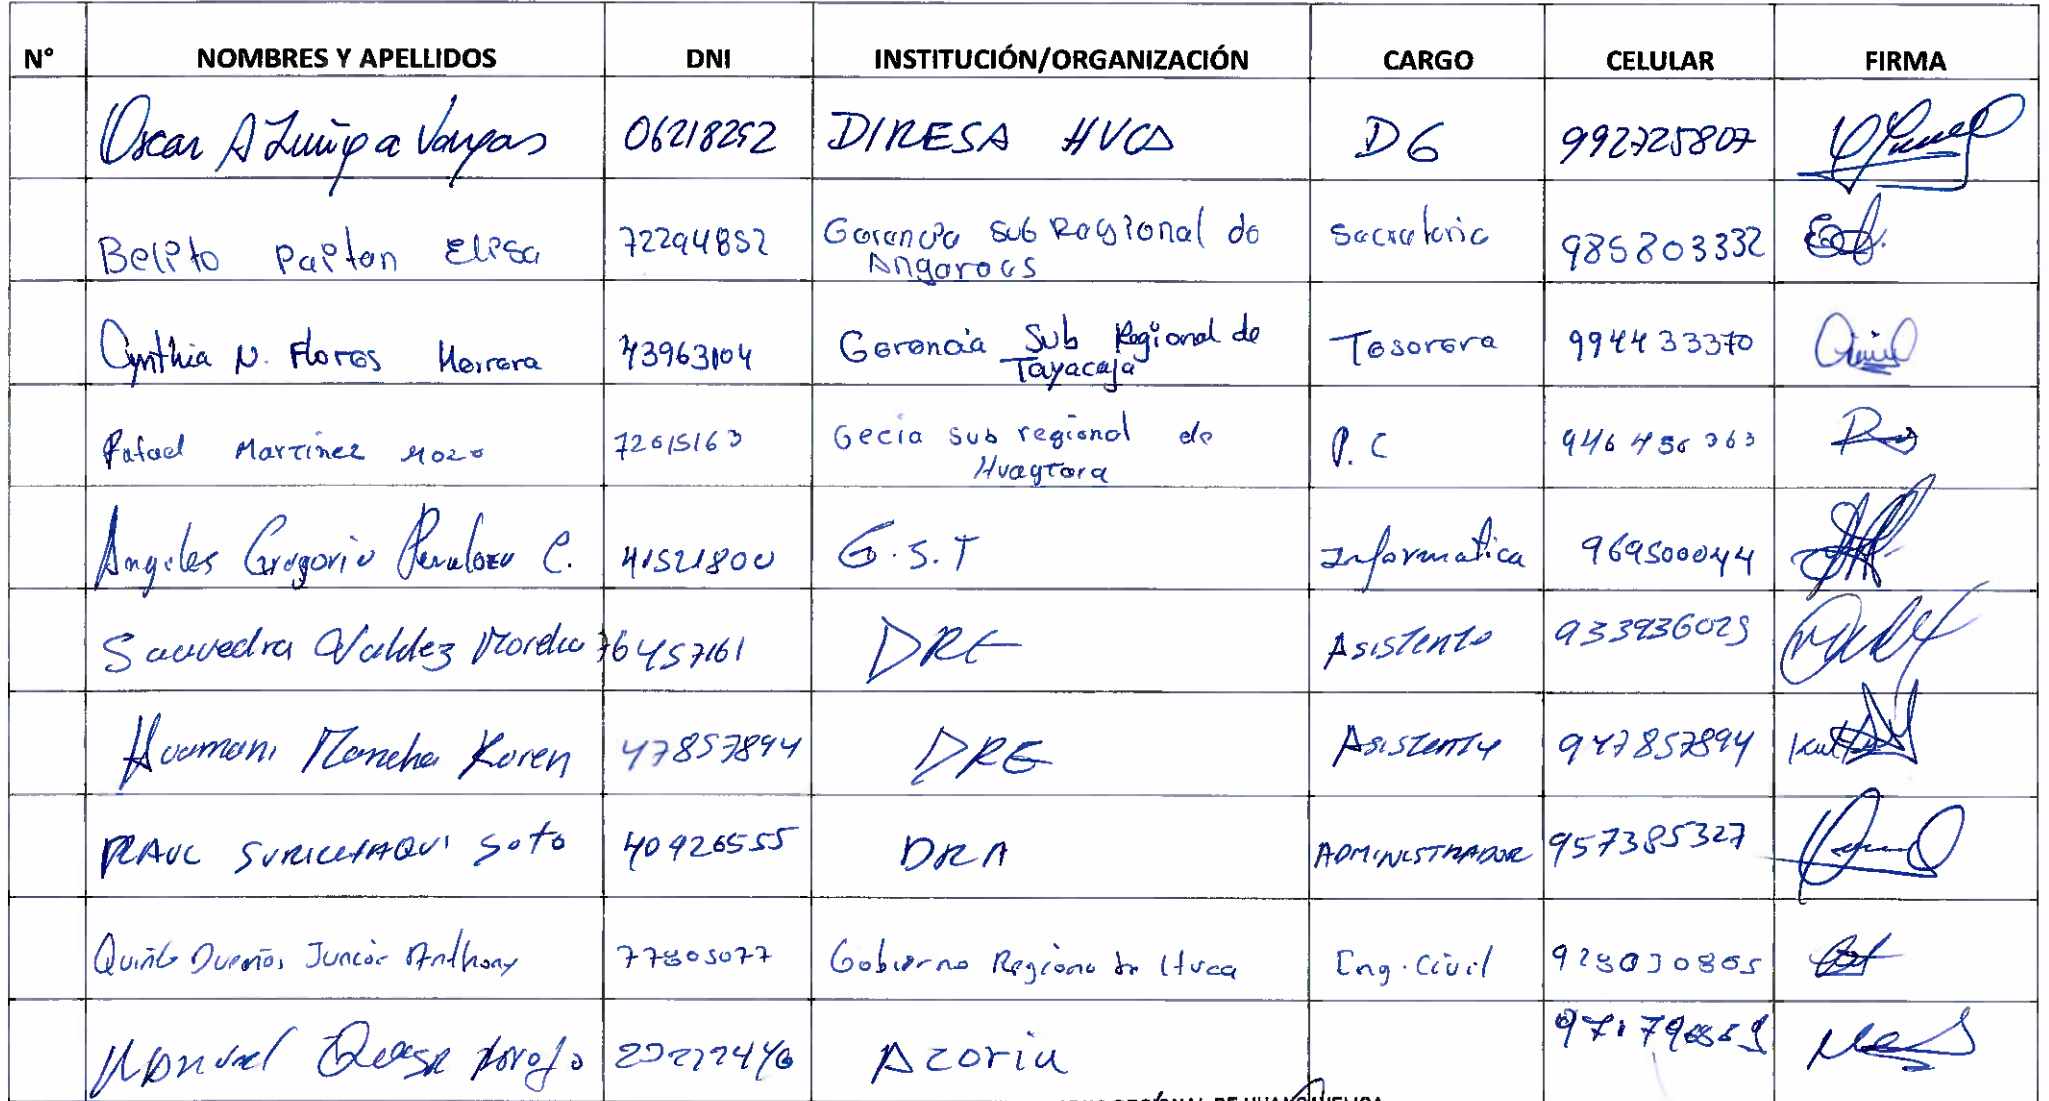 N° NOMBRES Y APELLIDOS DNI INSTITUCIÓN/ORGANIZACIÓN CARGO CELULAR FIRMA
Oscar A Zuñiga Vargas 06218252 DIRESA HVCA DG 992725807
Belito Paitan Elisa 72294852 Gerencia Sub Regional de Angaraes Secretaria 985803332
Cynthia N. Flores Herrera 43963104 Gerencia Sub Regional de Tayacaja Tesorera 994433370
Rafael Martinez 72615163 Gecia sub regional de Huaytara P. C
Angeles Gregorio C. 41521800 G.S.T Informatica 969500044
Saavedra Valdez 76457161 DRE Asistente 933936029
Huamani Mancha Karen 47857894 DRE Asistente 947857894
RAUL SURICHAQUI Soto 40926555 DRA ADMINISTRADOR 957385327
Junior Anthony 77805077 Gobierno Regional de Hvca Ing. Civil 928030805
Manuel